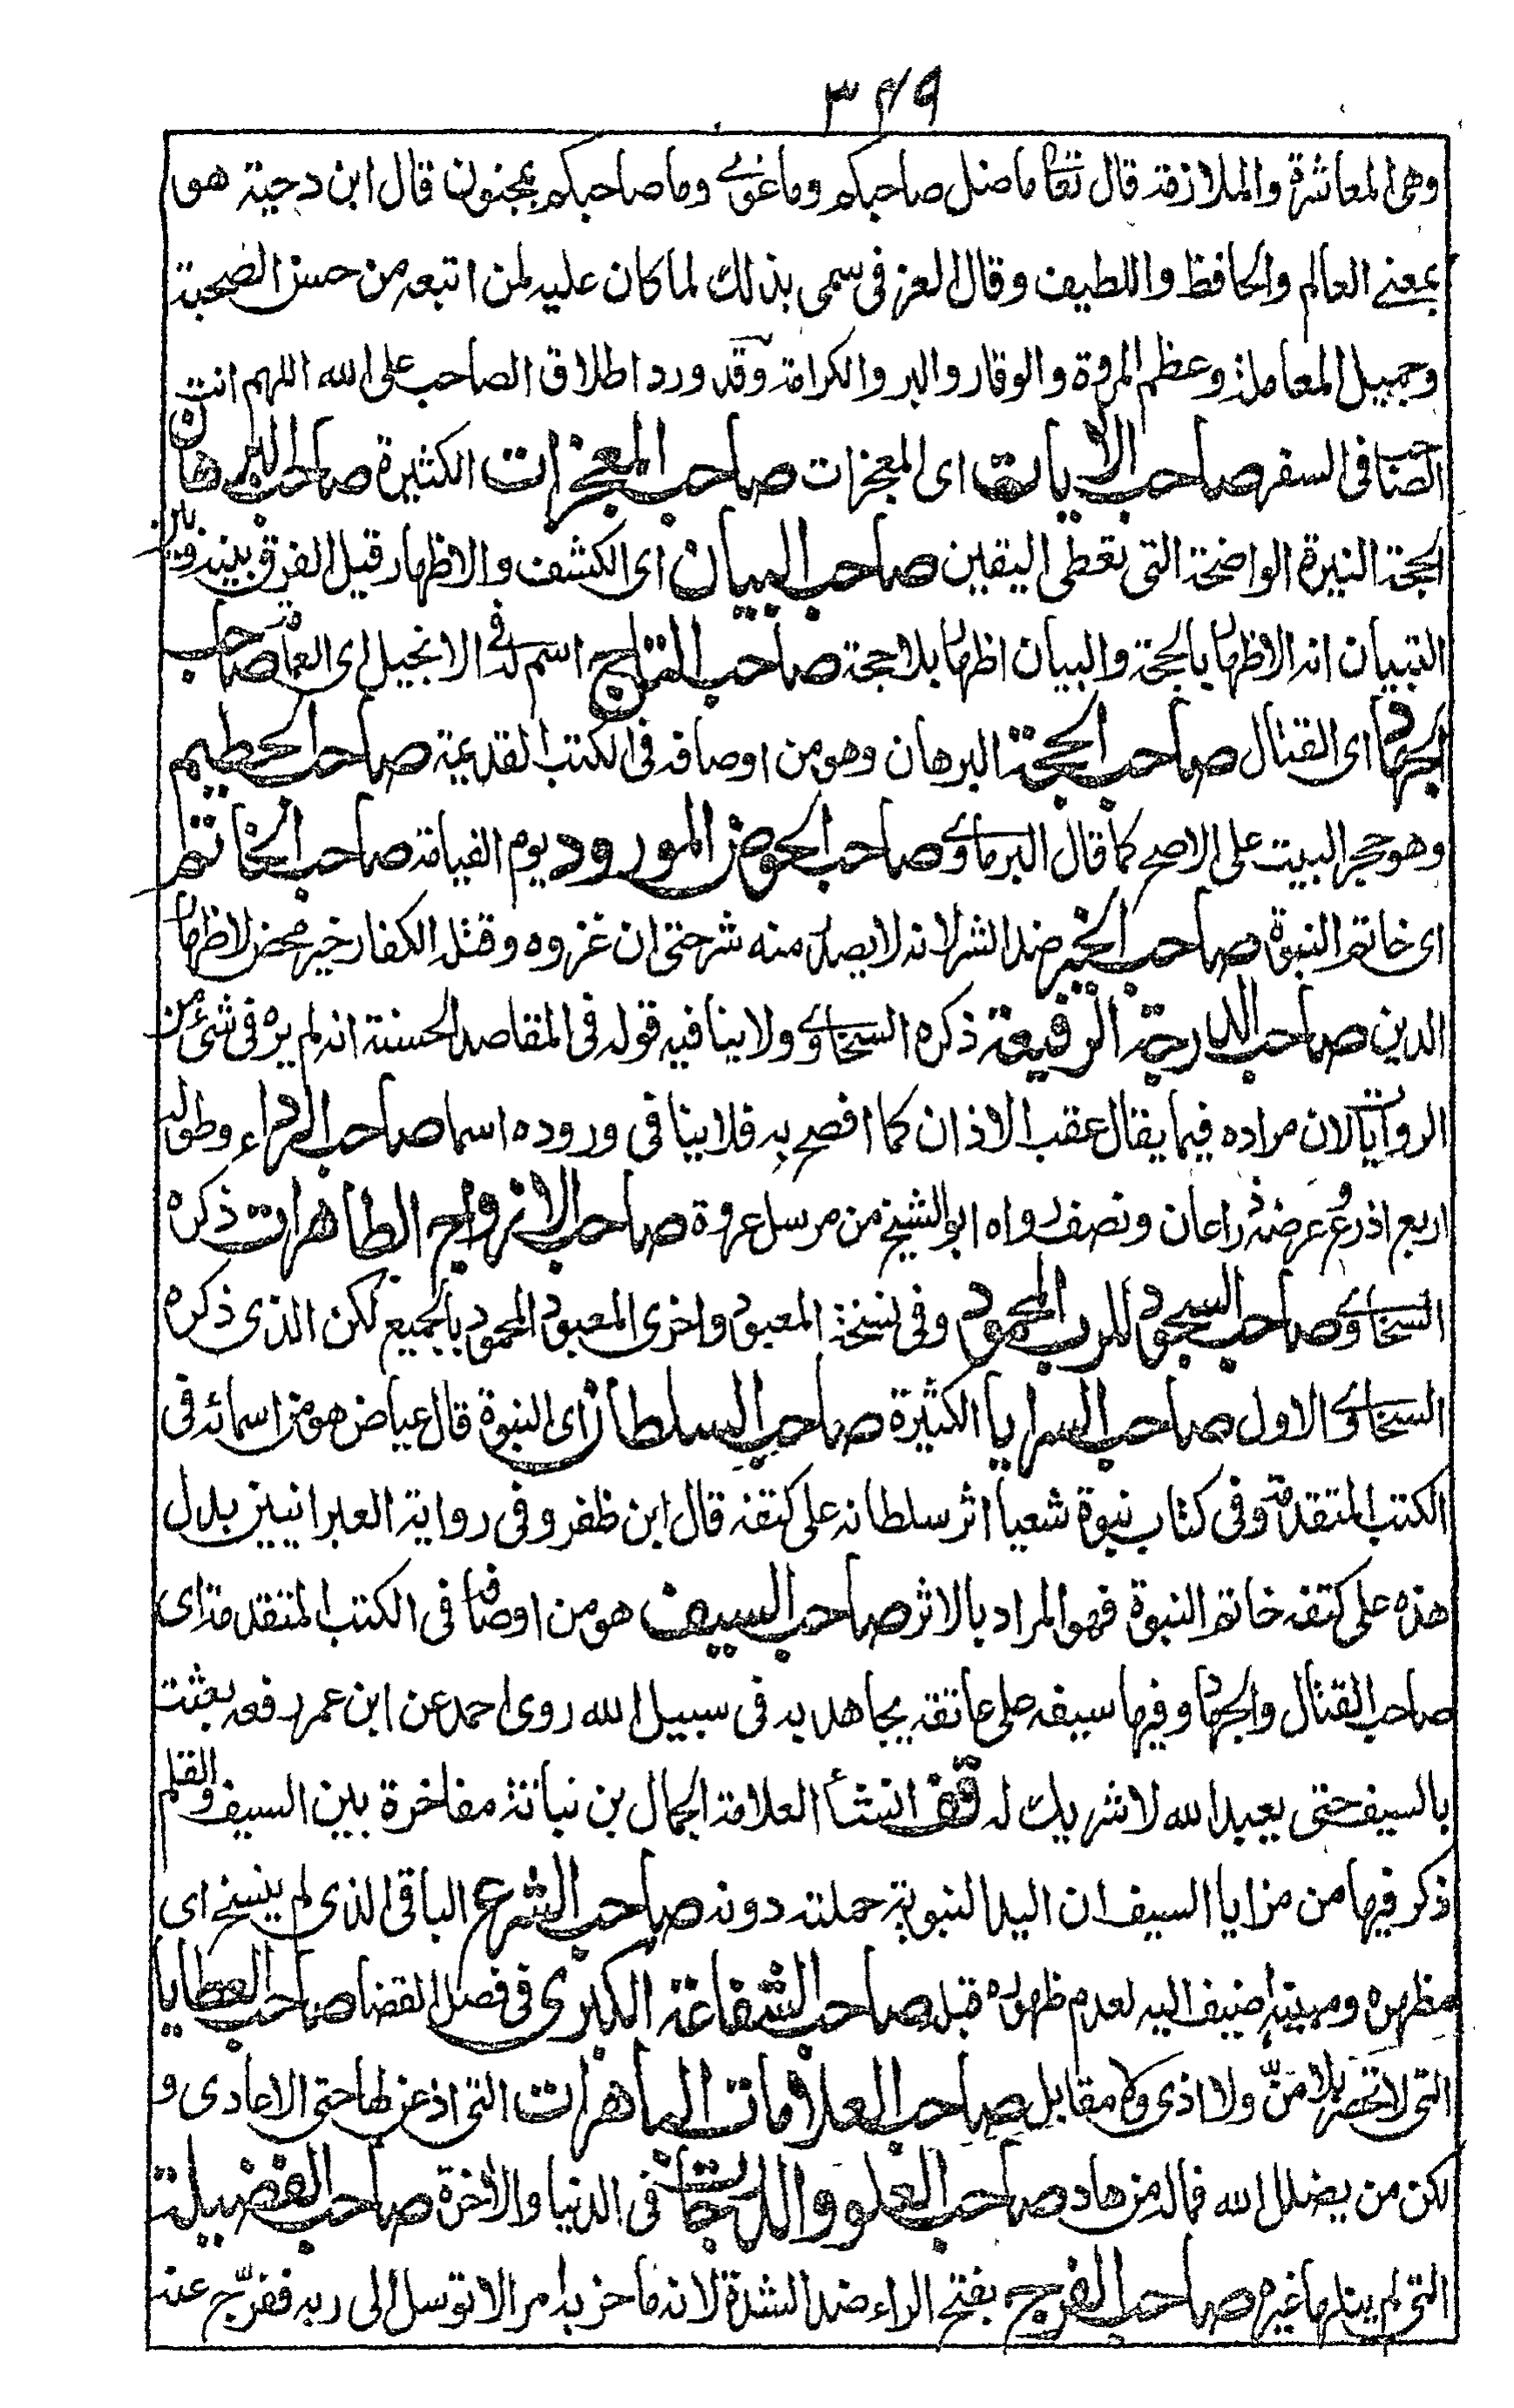 ٣٤٩
وهى المعاشرة والملازمة قال تعا ما ضل صاحبكم وما غوى وما صاحبكم بمجنون قال ابن دحية هو
بمعنى العالم والحافظ واللطيف وقال العزفى سمى بذلك لما كان عليه لمن اتبعه من حسن الصحبة
وجميل المعاملة وعظم المروة والوقار والبر والكرامة وقد ورد اطلاق الصاحب على الله اللهم انت
الصاحب فى السفر صاحب الايات اى المعجزات صاحب المعجزات الكثيرة صاحب البرهان
الحجة النيرة الواضحة التى تعطى اليقين صاحب البيان اى الكشف والاظهار قيل الفرق بينه وبين
التبيان انه الاظهار بالحجة والبيان اظهار بلا حجة صاحب التاج اسم له فى الانجيل اى العمامة صاحب
الجهاد اى القتال صاحب الحجة البرهان وهو من اوصافه فى الكتب القديمة صاحب الحطيم
وهو حجر البيت على الاصح كما قال البرماوى صاحب الحوض المورود يوم القيامة صاحب الخاتم
اى خاتم النبوة صاحب الخير ضد الشر لانه لا يصل منه شر حتى ان غزوه وقتل الكفار خير محض لاظهار
الدين صاحب الدرجة الرفيعة ذكره السخاوى ولا ينافيه قوله فى المقاصد الحسنة انه لم يره فى شئ من
الروايات لان مراده فيما يقال عقب الاذان كما افصح به فلا ينافى وروده اسما صاحب الرداء وطوله
اربع اذرع وعرضه ذراعان ونصف رواه ابو الشيخ من مرسل عروة صاحب الازواج الطاهرات ذكره
السخاوى صاحب السجود للرب المحمود وفى نسخة المعبود واخرى المعبود المحمود بالجميع لكن الذى ذكره
السخاوى الاول صاحب السرايا الكثيرة صاحب السلطان اى النبوة قال عياض هو من اسمائه فى
الكتب المتقدمة وفى كتاب نبوة شعيا اثر سلطانه على كتفه قال ابن ظفر وفى رواية العبرانيين بدل
هذه على كتفه خاتم النبوة فهو المراد بالاثر صاحب السيف هو من اوصافه فى الكتب المتقدمة اى
صاحب القتال والجهاد وفيها سيفه على عاتقه يجاهد به فى سبيل الله روى احمد عن ابن عمر رفعه بعثت
بالسيف حتى يعبد الله لا شريك له وقد انشأ العلامة الجمال بن نباتة مفاخرة بين السيف والقلم
ذكر فيها من مزايا السيف ان اليد النبوية حملته دونه صاحب الشرع الباقى الذى لم ينسخ اى
مظهره ومبينه اضيف اليه لعدم ظهوره قبله صاحب الشفاعة الكبرى فى فصل القضا صاحب العطايا
التى لا تحصر بلا منّ ولا اذى ولا مقابل صاحب العلامات الباهرات التى اذعن لها حتى الاعادى و
لكن من يضلل الله فماله من هاد صاحب العلو والدرجات فى الدنيا والأخرة صاحب الفضيلة
التى لم ينلها غيره صاحب الفرج بفتح الراء ضد الشدة لانه ما حزبه امر الا توسل الى ربه ففرّج عنه